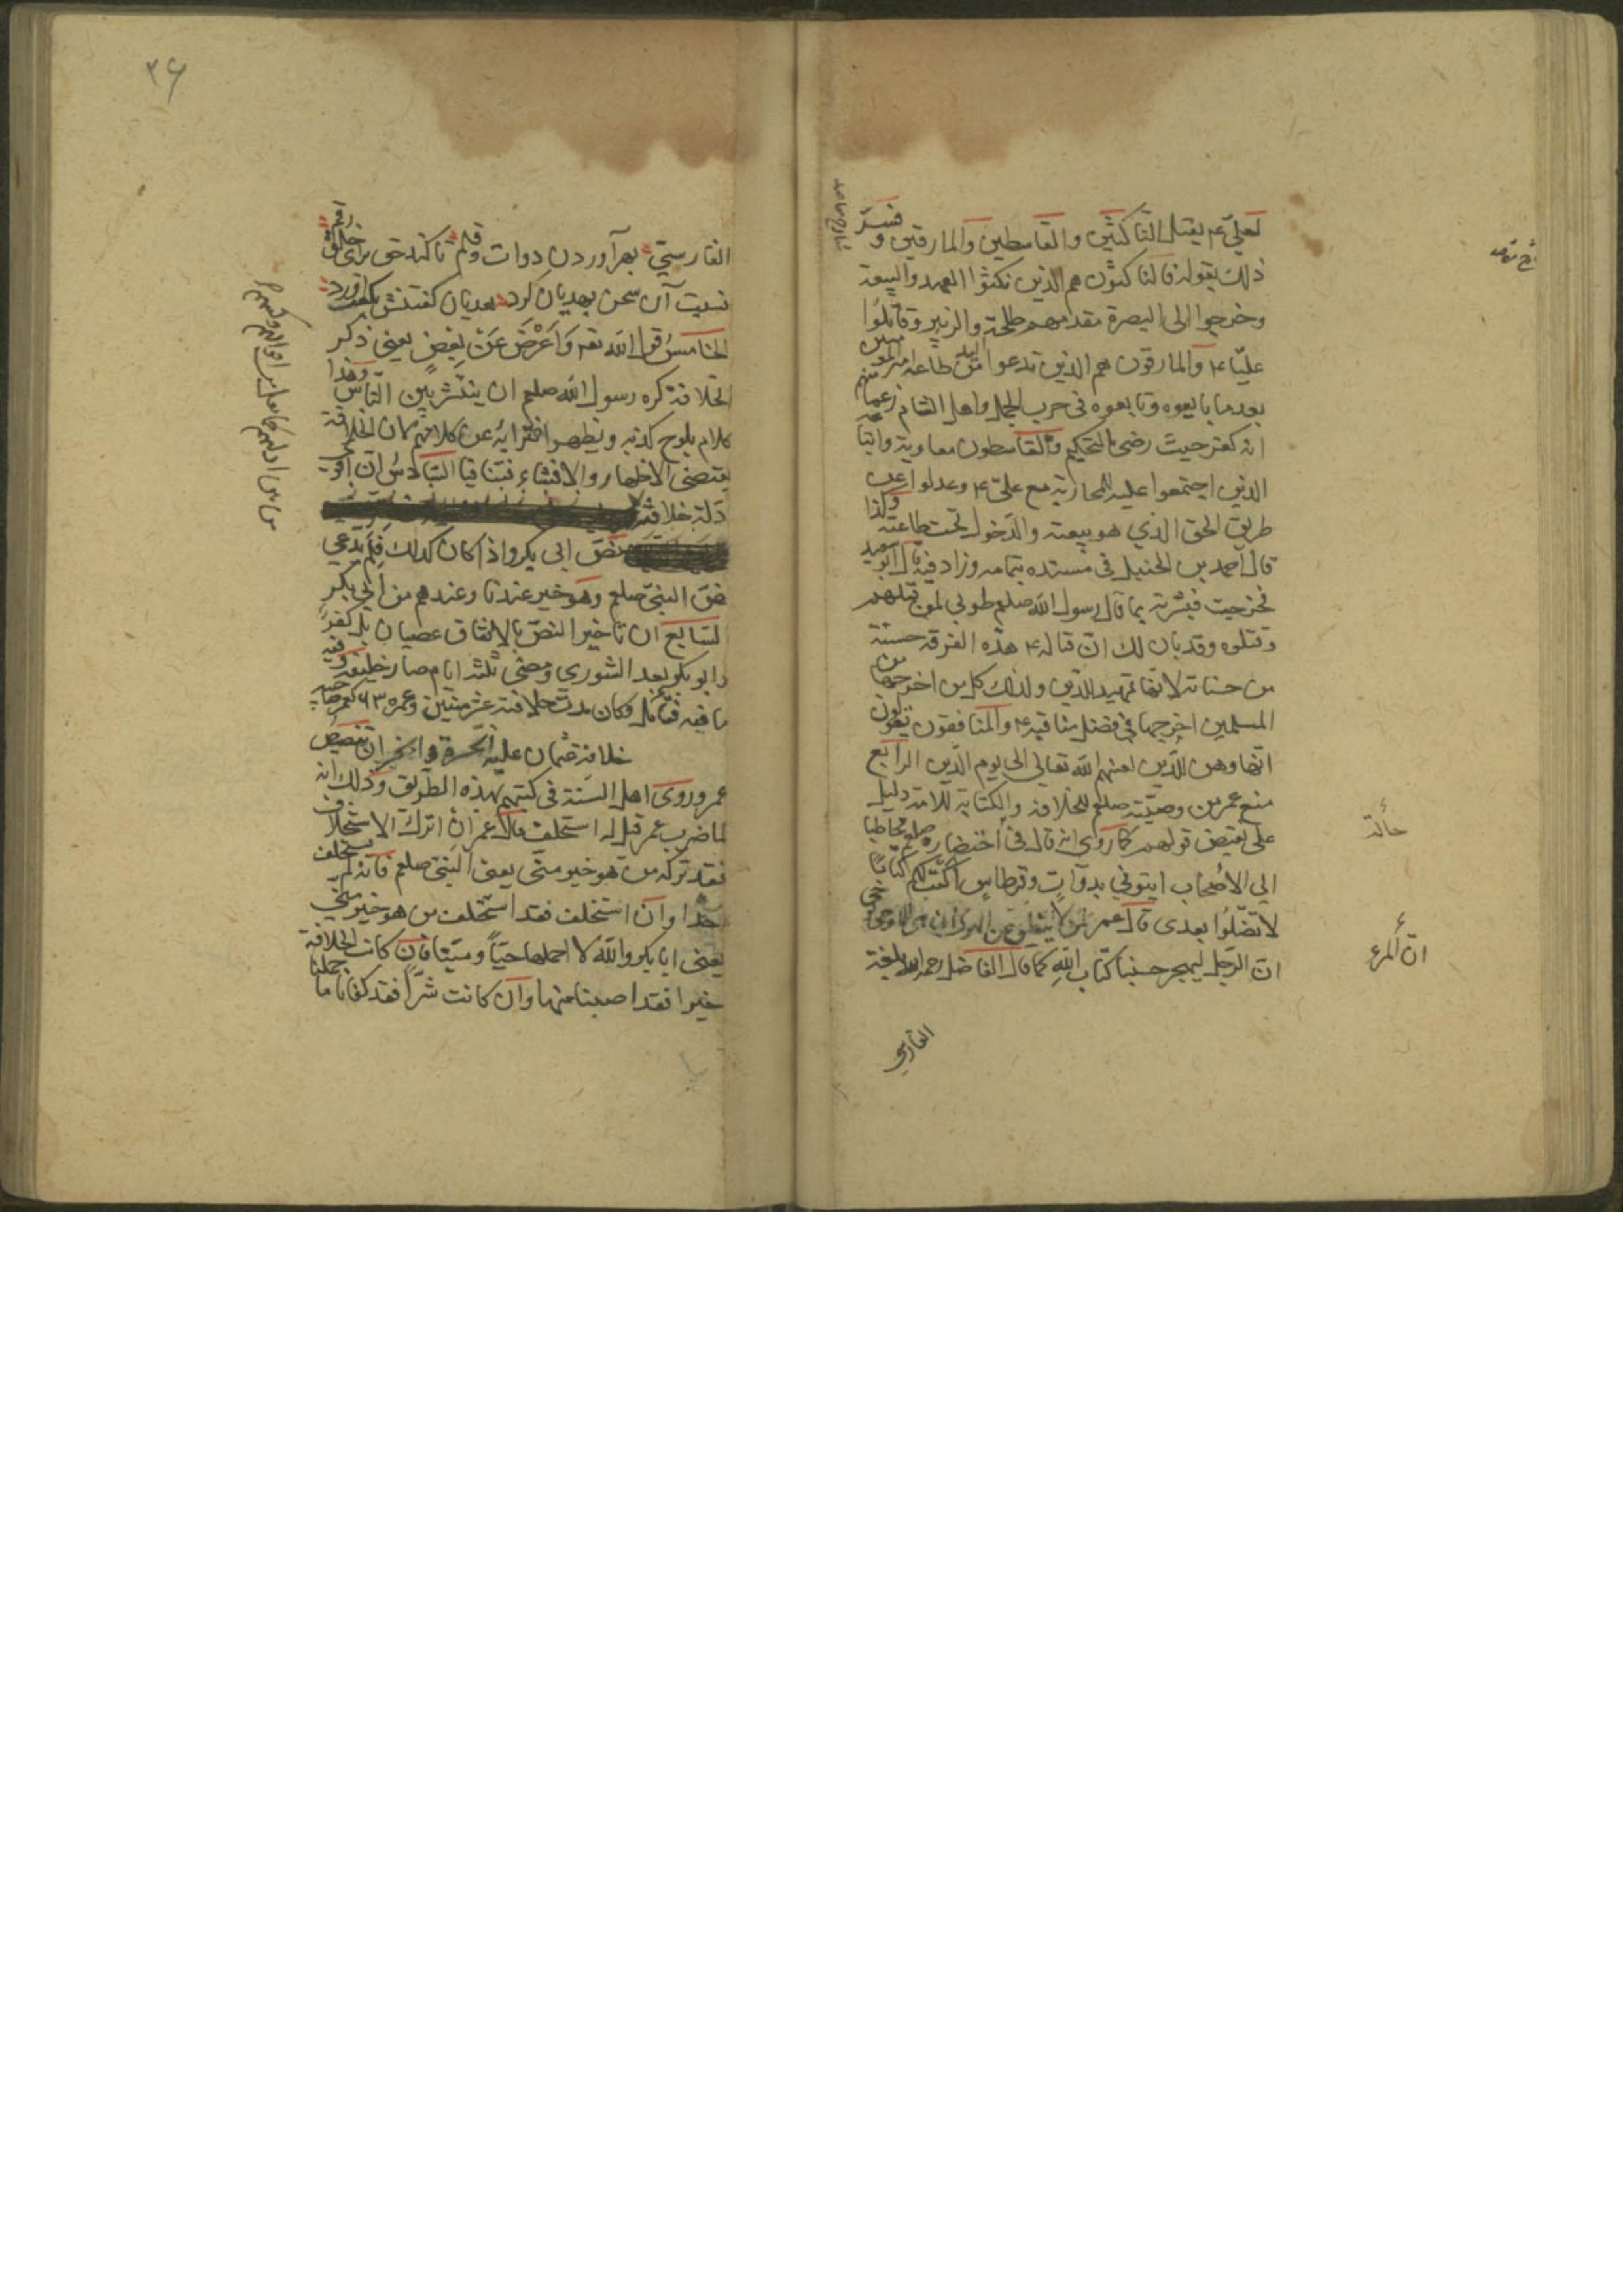 لعليّ ۴ يقتل الناكثين والقاسطين والمارقين و فسّر
ذلك بقوله فالناكثون هم الذين نكثوا العهد والبيعة
وخرجوا الى البصرة مقدامهم طلحة والزبير وقاتلوا
عليّا ۴ والمارقون هم الذين طاعة امير المؤمنين
بعد ما بايعوه وتابعوه فى حرب الجمل واهل الشام زعما منهم
انه كفر حيث رضى بالتحكيم والقاسطون معاوية واتباعه
الذين اجتمعوا عليه للمحاربة مع علىّ ۴ وعدلوا عن
طريق الحق الذي هو بيعته والدخول تحت طاعته وكذا
قال احمد بن الحنبل فى مسنده بتمامه وزاد فيه قال ابو سعيد
فخرجت فبشرته بما قال رسول الله صلعم طوبى لمن قتلهم
وقتلوه وقد بان لك ان قتاله ۴ هذه الفرقة حسنة
من حسناته لانها تمهيد الدين ولذلك كل من اخرجها من
المسلمين اخرجها فى فضل مناقبه ۴ والمنافقون يقولون
انها وهن للدين لعنهم الله تعالى الى يوم الدين الرابع
منع عمر من وصيّته صلعم للخلافة والكتابة للامة دليل
على نقيض قولهم كما روى انه قال فى احتضاره صلعم مخاطبا
الى الاصحاب ايتونى بدوات وقرطاس اكتب لكم كتابا
لا تضلّوا بعدى قال عمر
ان الرجل ليهجر حسبنا كتاب الله كما قال الفاضل رحمه الله بلغة
الفارسي
حالة
ان المرء
٣۶
الفارستي بهر آوردن دوات وقلم تا كند حق براى خلق رقم
نسبت آن سخن بهديان كرد هديان گفتنش
الخامس قول الله تعه وَاَعْرَضَ عَنْ بَعْضٍ يعنى ذكر
الخلافة كره رسول الله صلعم ان ينتشر بين الناس وهذا
كلام يلوح كذبه ويظهر افترائه عن كلامهم لان الخلافة
يقتضى الاظهار والافشاء فتنافيا السادس ان اقوى
دلة خلافته
نصّ ابى بكر واذا كان كذلك فلم يدعى
نصّ النبىّ صلعم وهو خير عندنا وعندهم من ابى بكر
السابع ان تاخير النصّ بالاتفاق عصيان بل كفر
وابو بكر بعد الشورى ومضى ثلثة ايام صار خليفة وفيه
ما فيه فتأمل وكان مدت خلافته عشر سنين وعمره ۶۳ كعمر صاحبيه
خلافة عثمان عليه الحسرة والخسران بتنصيص
عمر وروى اهل السنة فى كتبهم بهذه الطريق وذلك انه
لما ضرب عمر قيل له استخلف قال عمر ان اترك الاستخلاف
فقد تركه من هو خير منّى يعنى النبىّ صلعم فانه لم يستخلف
احدا وان استخلف فقد استخلف من هو خير منّى
يعنى ابا بكر والله لا احملها حيّا وميّتا فان كانت الخلافة
خيرا فقد اصبنا منها وان كانت شرّا فقد كفانا ما حملنا